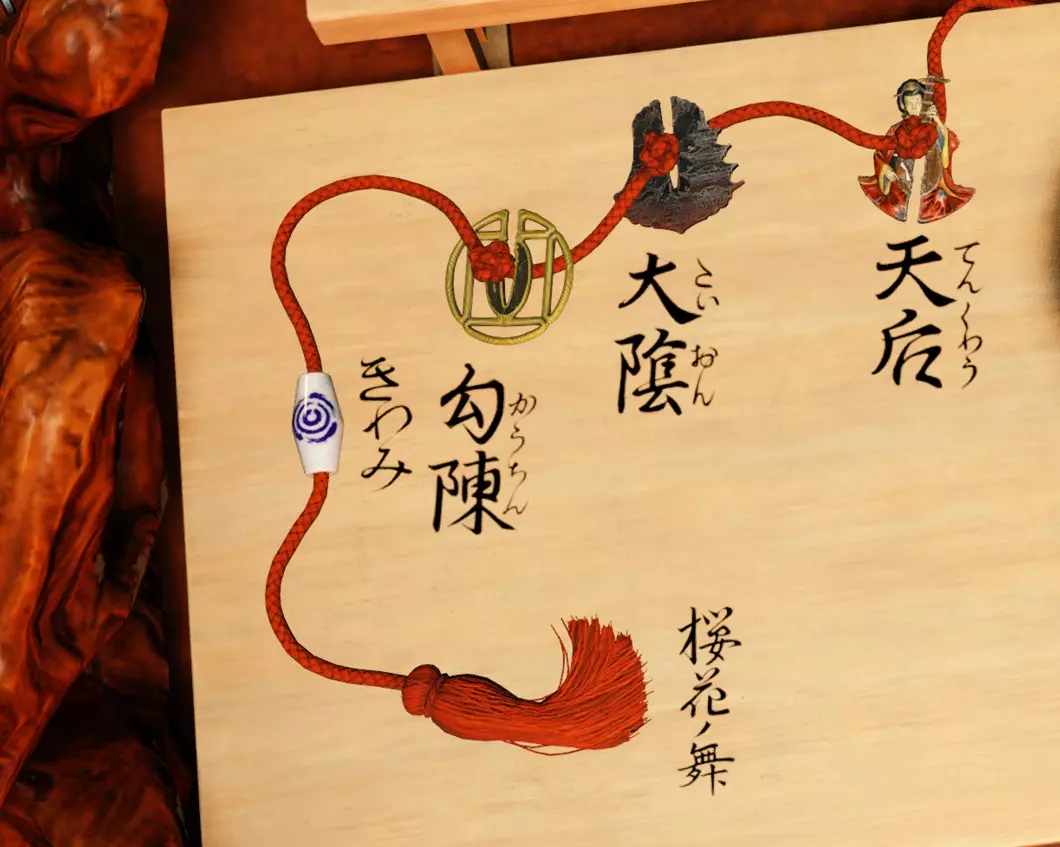 天后
てんくわう
大陰
たいおん
勾陳
かうちん
きわみ
桜花ノ舞